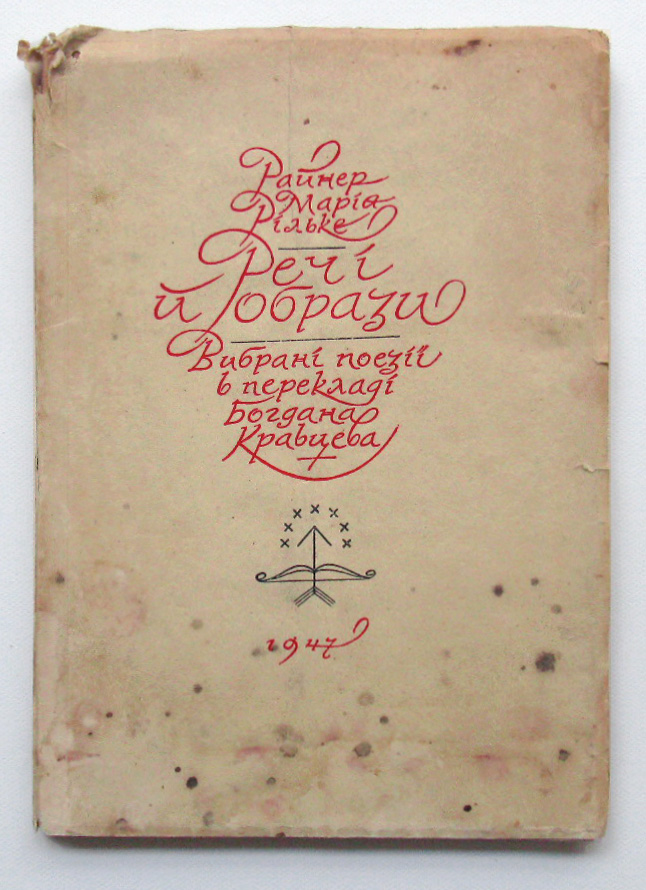 Райнер
Марія
Рільке
Речі
й образи
Вибрані поезії
в перекладі
Богдана
Кравцева
1947